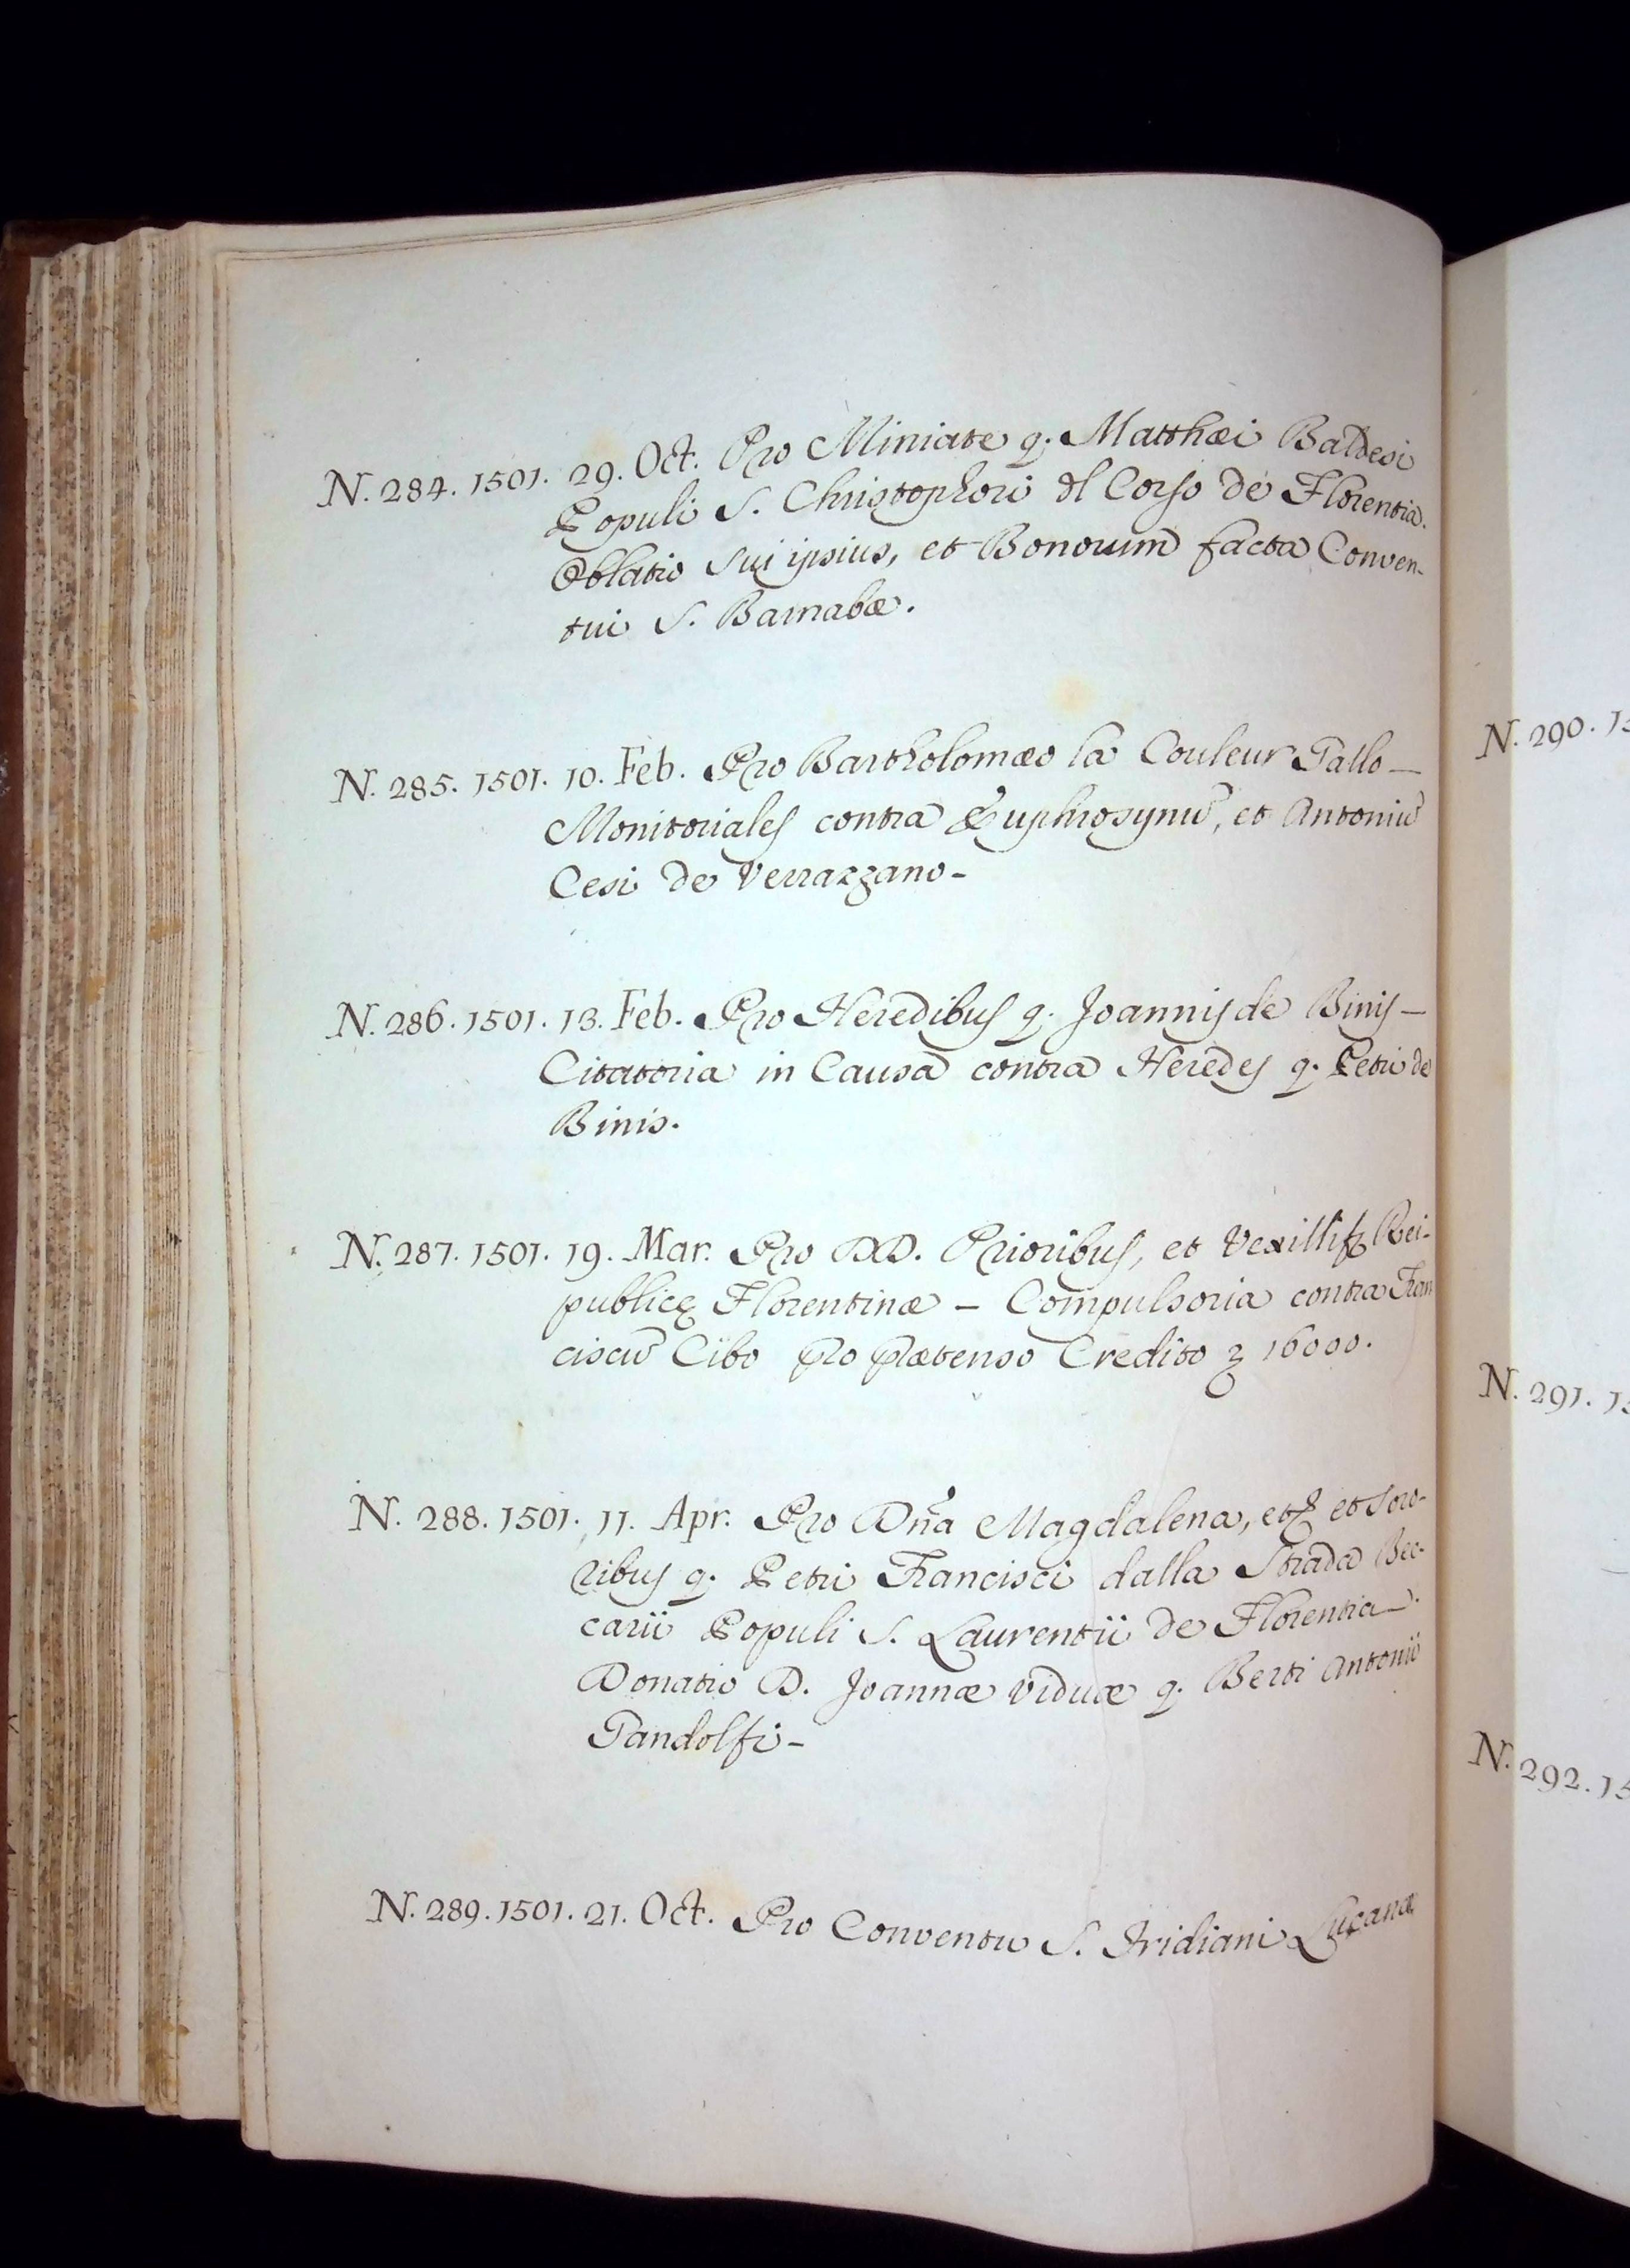 N. 284. 1501. 29. Oct. Pro Miniate q. Matthæi Baldesi
Populi S. Christophori dl Corso de Florentia.
Oblatio sui ipsius, et Bonorum facta Conven-
tui S. Barnabæ.
N. 285. 1501. 10. Feb. Pro Bartholomæo la Couleur Gallo —
Monitoriales contra Euphrosynū, et Antoniū
Cesi de Verrazzano -
N. 286. 1501. 13. Feb. Pro Heredibus q. Joannis de Binis —
Citatoria in Causa contra Heredes q. Petri de
Binis.
N. 287. 1501. 19. Mar. Pro DD. Prioribus, et Vexillif Rei-
publicę Florentinæ — Compulsoria contra Fran
ciscū Cibo pro prætenso Credito 16000.
N. 288. 1501. 11. Apr. Pro Dña Magdalena, et soro-
ribus q. Petri Francisci dalla Strada Bec-
carii Populi S. Laurentii de Florentia —.
Donatio D. Joannæ viduæ q. Berti Antonii
Pandolfi -
N. 289. 1501. 21. Oct. Pro Conventu S. Fridiani Lucanæ
N. 290. 15
N. 291. 15
N. 292. 15